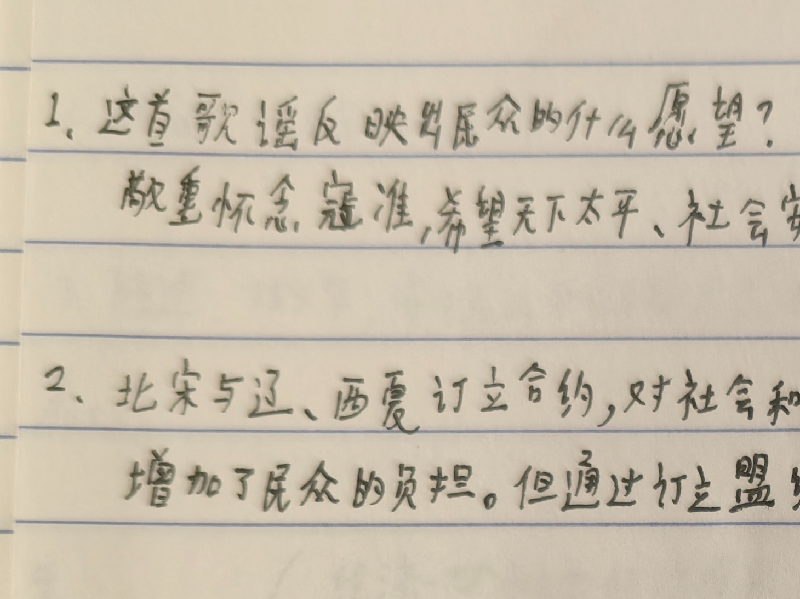 1、这首歌谣反映出民众的什么愿望?
敬重怀念寇准,希望天下太平、社会安
2、北宋与辽、西夏订立合约,对社会和
增加了民众的负担。但通过订立盟约